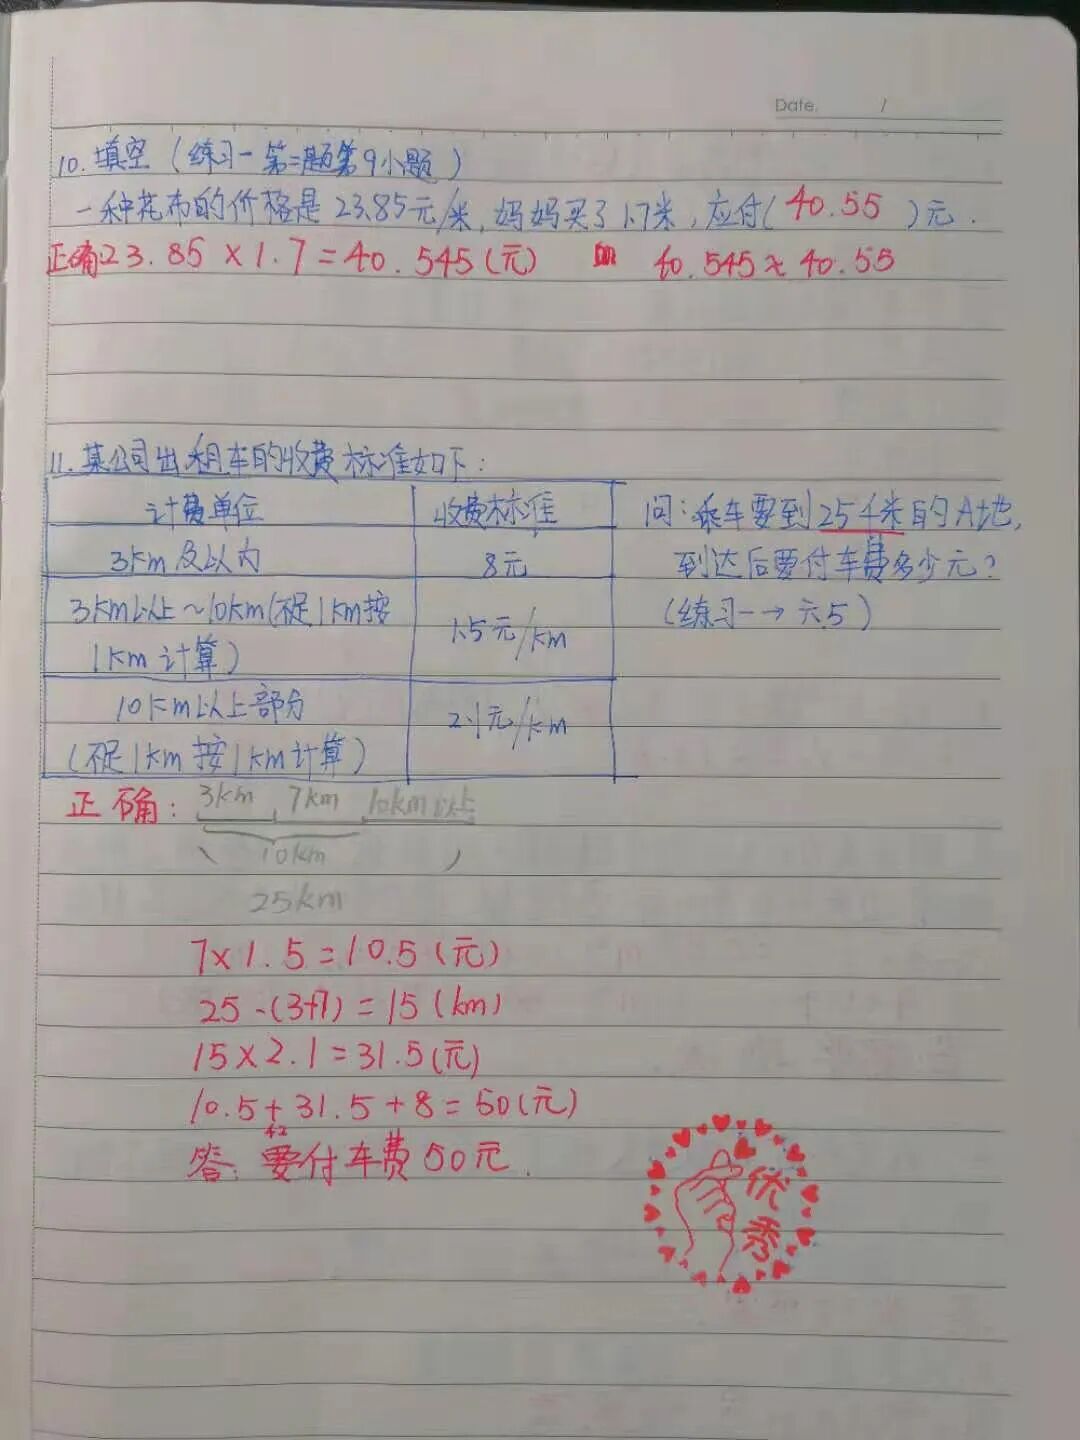 Date. /
10. 填空(练习一第二题第9小题)
一种花布的价格是23.85元/米,妈妈买了1.7米,应付(40.55)元.
正确23.85×1.7=40.545(元) 40.545≈40.55
11.某公司出租车的收费标准如下:
计费单位 收费标准
3km及以内 8元
3km以上~10km(不足1km按
1km计算) 1.5元/km
10km以上部分
(不足1km按1km计算) 2.1元/km
问:乘车要到25千米的A地,
到达后要付车费多少元?
(练习一→六.5)
正确: 3km 7km 10km以上
10km
25km
7×1.5=10.5(元)
25-(3+7)=15(km)
15×2.1=31.5(元)
10.5+31.5+8=50(元)
42
答:要付车费50元.
优秀